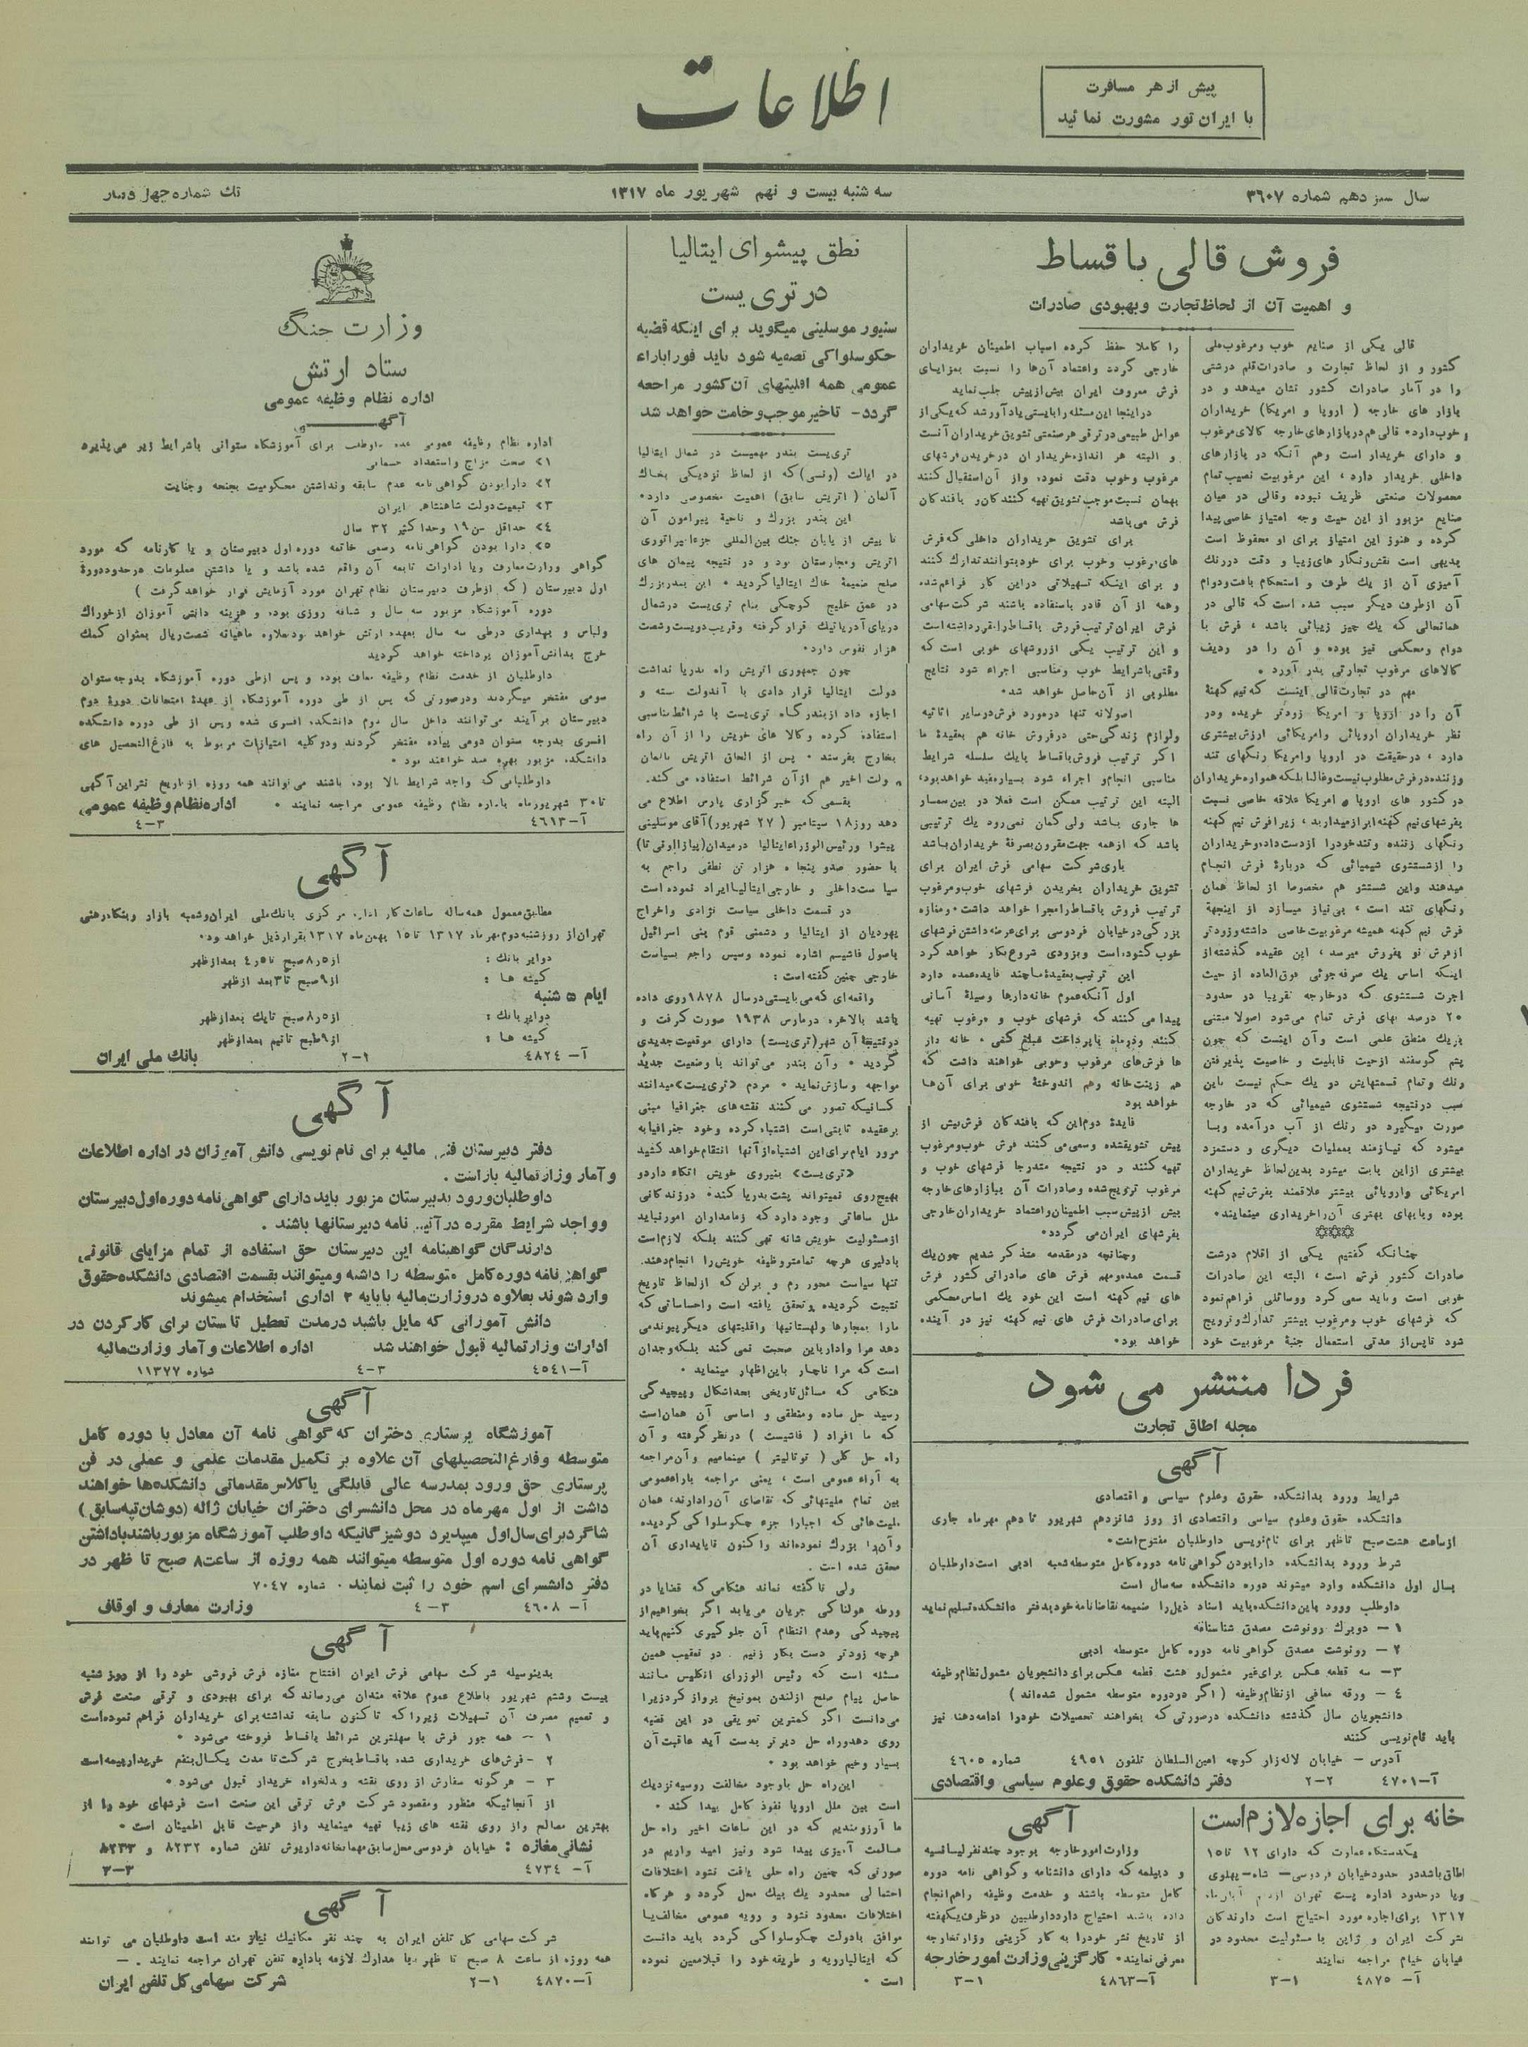 پیش از هر مسافرت
با ایران تور مشورت نمائید
اطلاعات
سال سیزدهم شماره ۳۶۰۷
سه شنبه بیست و نهم شهریور ماه ۱۳۱۷
تک شماره چهل دینار
فروش قالی باقساط
و اهمیت آن از لحاظ تجارت و بهبودی صادرات
قالی یکی از صنایع خوب و مرغوب ملی
کشور و از لحاظ تجارت و صادرات قلم درشتی
را در آمار صادرات کشور نشان میدهد و در
بازار های خارجه ( اروپا و امریکا ) خریداران
خوب دارد. قالی هم در بازارهای خارجه کالای مرغوب
و دارای خریدار است وهم آنکه در بازارهای
داخلی خریدار دارد ، این مرغوبیت نصیب تمام
محصولات صنعتی ظریف نبوده و قالی در میان
صنایع مزبور از این حیث وجه امتیاز خاصی پیدا
کرده و هنوز این امتیاز برای او محفوظ است
بدیهی است نقش و نگار های زیبا و دقت در رنگ
آمیزی آن از یک طرف و استحکام بافت و دوام
آن از طرف دیگر سبب شده است که قالی در
همانحالی که یک چیز زیبائی باشد ، فرش با
دوام و محکمی نیز بوده و آن را در ردیف
کالاهای مرغوب تجارتی بدر آورد .
مهم در تجارت قالی اینست که نیم کهنهٔ
آن را در اروپا و امریکا زودتر خریده و در
نظر خریداران اروپائی و امریکائی ارزش بیشتری
دارد ، در حقیقت در اروپا و امریکا رنگهای تند
و زننده در فرش مطلوب نیست و غالبا بلکه همواره خریداران
در کشور های اروپا و امریکا علاقه خاصی نسبت
بفرشهای نیم کهنه ابراز میدارند ، زیرا فرش نیم کهنه
رنگهای زننده و تند خود را از دست داده و خریداران
را از شستشوی شیمیائی که دربارهٔ فرش انجام
میدهند و این شستشو هم مخصوصا از لحاظ همان
رنگهای تند است ، بی نیاز میسازد از اینجهة
فرش نیم کهنه همیشه مرغوبیت خاصی داشته و زودتر
از فرش نو بفروش میرسد ، این عقیده گذشته از
اینکه اساس یک صرفه جوئی فوق العاده از حیث
اجرت شستشوی که در خارجه تقریبا در حدود
۲۰ درصد بهای فرش تمام می شود اصولا مبتنی
بر یک منطق علمی است و آن اینست که چون
پشم گوسفند از حیث قابلیت و خاصیت پذیرفتن
رنگ و تمام قسمتهایش در یک حکم نیست باین
سبب در نتیجه شستشوی شیمیائی که در خارجه
صورت میگیرد دو رنگ از آب در آمده و بسا
میشود که نیازمند بعملیات دیگری و دستمزد
بیشتری از این بابت میشود بدین لحاظ خریداران
امریکائی و اروپائی بیشتر علاقمند بفرش نیم کهنه
بوده و بابهای بهتری آن را خریداری مینمایند.
چنانکه گفتیم یکی از اقلام درشت
صادرات کشور فرش است ، البته این صادرات
خوبی است و باید سعی کرد و وسائلی فراهم نمود
که فرشهای خوب و مرغوب بیشتر تدارک و ترویج
شود تا پس از مدتی استعمال جنبهٔ مرغوبیت خود
را کاملا حفظ کرده اسباب اطمینان خریداران
خارجی گردد و اعتماد آن ها را نسبت بمزایای
فرش معروف ایران بیش از پیش جلب نماید
در اینجا این مسئله را بایستی یادآور شد که یکی از
عوامل طبیعی در ترقی هر صنعتی تشویق خریداران آنست
و البته هر اندازه خریداران در خریدن فرشهای
مرغوب و خوب دقت نموده و از آن استقبال کنند
بهمان نسبت موجب تشویق تهیه کنندگان و بافندگان
فرش می باشد
برای تشویق خریداران داخلی که فرش
های مرغوب و خوب برای خود بتوانند تدارک کنند
و برای اینکه تسهیلاتی در این کار فراهم شده
وهمه از آن قادر باستفاده باشند شرکت سهامی
فرش ایران ترتیب فروش باقساط را مقرر داشته است
و این ترتیب یکی از روشهای خوبی است که
وقتی با شرایط خوب و مناسبی اجراء شود نتایج
مطلوبی از آن حاصل خواهد شد.
اصولا نه تنها در مورد فرش در سایر اثاثیه
و لوازم زندگی حتی در فروش خانه هم بعقیدهٔ ما
اگر ترتیب فروش باقساط با یک سلسله شرایط
مناسبی انجام و اجراء شود بسیار مفید خواهد بود،
البته این ترتیب ممکن است فعلا در بین سمسار
ها جاری باشد ولی گمان نمی رود یک ترتیبی
باشد که از همه جهت مقرون بصرفهٔ خریداران باشد
باری شرکت سهامی فرش ایران برای
تشویق خریداران بخریدن فرشهای خوب و مرغوب
ترتیب فروش باقساط را مجرا خواهد داشت. و مغازه
بزرگی در خیابان فردوسی برای عرضه داشتن فرشهای
خوب گشوده است و بزودی شروع بکار خواهد کرد
این ترتیب بعقیدهٔ ما چند فایده عمده دارد
اول آنکه عموم خانه دارها وسیلهٔ آسانی
پیدا می کنند که فرشهای خوب و مرغوب تهیه
کنند و در ماه با پرداخت مبلغ کمی ، خانه دار
ها فرش های مرغوب و خوبی خواهند داشت که
هم زینت خانه وهم اندوختهٔ خوبی برای آن ها
خواهد بود
فایدهٔ دوم این که بافندگان فرش بیش از
پیش تشویق شده و سعی می کنند فرش خوب و مرغوب
تهیه کنند و در نتیجه متدرجا فرشهای خوب و
مرغوب ترویج شده و صادرات آن ببازارهای خارجه
بیش از پیش سبب اطمینان و اعتماد خریداران خارجی
بفرشهای ایران می گردد.
و چنانچه در مقدمه متذکر شدیم چون یک
قسمت عمده و مهم فرش های صادراتی کشور فرش
های نیم کهنه است این خود یک اساس محکمی
برای صادرات فرش های نیم کهنه نیز در آینده
خواهد بود.
فردا منتشر می شود
مجله اطاق تجارت
آگهی
شرایط ورود بدانشکده حقوق و علوم سیاسی و اقتصادی
دانشکده حقوق و علوم سیاسی و اقتصادی از روز شانزدهم شهریور تا دهم مهر ماه جاری
از ساعت هشت صبح تا ظهر برای نام نویسی داوطلبان مفتوح است.
شرط ورود بدانشکده دارا بودن گواهی نامه دوره کامل متوسطه شعبه ادبی است داوطلبان
بسال اول دانشکده وارد میشوند دوره دانشکده سه سال است
داوطلب ورود باین دانشکده باید اسناد ذیل را ضمیمه تقاضانامه خود بدفتر دانشکده تسلیم نماید
۱ – دو برگ رونوشت مصدق شناسنامه
۲ – رونوشت مصدق گواهی نامه دوره کامل متوسطه ادبی
۳ – سه قطعه عکس برای غیر مشمول و هشت قطعه عکس برای دانشجویان مشمول نظام وظیفه
۴ – ورقه معافی از نظام وظیفه ( اگر در دوره متوسطه مشمول شده اند )
دانشجویان سال گذشته دانشکده در صورتی که بخواهند تحصیلات خود را ادامه دهند نیز
باید نام نویسی کنند
آدرس – خیابان لاله زار کوچه امین السلطان تلفون ۴۹۵۱ شماره ۴۶۰۵
آ–۴۷۰۱ ۲–۲ دفتر دانشکده حقوق و علوم سیاسی و اقتصادی
خانه برای اجازه لازم است
یکدستگاه عمارت که دارای ۱۲ تا ۱۵
اطاق باشد در حدود خیابان فردوسی – شاه – پهلوی
و یا در حدود اداره پست تهران از
۱۳۱۷ برای اجاره مورد احتیاج است دارندگان
شرکت ایران و ژاپن با مسئولیت محدود در
خیابان خیام مراجعه نمایند
آ– ۴۸۷۵ ۱–۳
آگهی
وزارت امور خارجه بوجود چند نفر لیسانسیه
و دیپلمه که دارای دانشنامه و گواهی نامه دوره
کامل متوسطه باشند و خدمت وظیفه را هم انجام
داده باشند احتیاج دارد داوطلبین در ظرف یکهفته
از تاریخ نشر خود را به کارگزینی وزارتخارجه
معرفی نمایند. کارگزینی وزارت امور خارجه
آ–۴۸۶۳ ۱–۳
نطق پیشوای ایتالیا
در تری یست
سنیور موسلینی میگوید برای اینکه قضیه
چکوسلواکی تصفیه شود باید فورا بآراء
عمومی همه اقلیتهای آن کشور مراجعه
گردد – تاخیر موجب وخامت خواهد شد
تری یست بندر مهمیست در شمال ایتالیا
در ایالت (ونسی) که از لحاظ نزدیکی بخاک
آلمان ( اتریش سابق ) اهمیت مخصوصی دارد.
این بندر بزرگ و ناحیهٔ پیرامون آن
تا پیش از پایان جنگ بین المللی جزء امپراتوری
اتریش و مجارستان بود و در نتیجه پیمان های
صلح ضمیمهٔ خاک ایتالیا گردید . این بندر بزرگ
در عمق خلیج کوچکی بنام تری یست در شمال
دریای آدریاتیک قرار گرفته و قریب دویست و شصت
هزار نفوس دارد.
چون جمهوری اتریش راه بدریا نداشت
دولت ایتالیا قرار دادی با آندولت بسته و
اجازه داد از بندرگاه تری یست با شرائط مناسبی
استفاده کرده و کالا های خویش را از آن راه
بخارج بفرستد . پس از الحاق اتریش بالمان
دولت اخیر هم از آن شرائط استفاده می کند.
بقسمی که خبرگزاری پارس اطلاع می
دهد روز ۱۸ سپتامبر ( ۲۷ شهریور ) آقای موسلینی
پیشوا و رئیس الوزراء ایتالیا در میدان (پیازا اونی تا)
با حضور صد و پنجاه هزار تن نطقی راجع به
سیاست داخلی و خارجی ایتالیا ایراد نموده است
در قسمت داخلی سیاست نژادی و اخراج
یهودیان از ایتالیا و دشمنی قوم بنی اسرائیل
باصول فاشیسم اشاره نموده وسپس راجع بسیاست
خارجی چنین گفته است :
واقعه ای که می بایستی در سال ۱۸۷۸ روی داده
باشد بالاخره در مارس ۱۹۳۸ صورت گرفت و
در نتیجهٔ آن شهر (تری یست) دارای موقعیت جدیدی
گردید . و آن بندر می تواند با وضعیت جدید
مواجهه و سازش نماید . مردم «تری یست» میدانند
کسانیکه تصور می کنند نقشه های جغرافیا مبنی
بر عقیده ثابتی است اشتباه کرده و خود جغرافیا به
مرور ایام برای این اشتباه از آنها انتقام خواهد کشید
«تری یست» بنیروی خویش اتکاء دارد و
بهیچ روی نمیتواند پشت بدریا کند . در زندگانی
ملل ساعاتی وجود دارد که زمامداران امور نباید
از مسئولیت خویش شانه تهی کنند بلکه لازم است
بادلیری هرچه تمامتر وظیفه خویش را انجام دهند.
تنها سیاست محور رم و برلن که از لحاظ تاریخ
تثبیت گردیده و تحقق یافته است و احساساتی که
ما را بمجارها و لهستانیها و اقلیتهای دیگر پیوند می
دهد مرا وادار باین صحبت نمی کند بلکه وجدان
است که مرا ناچار باین اظهار مینماید .
هنگامی که مسائل تاریخی بحد اشکال و پیچیدگی
رسید حل ساده و منطقی و اساسی آن همان است
که ما افراد ( فاشیست ) در نظر گرفته و آن
راه حل کلی ( توتالیتر ) مینمامیم و آن مراجعه
به آراء عمومی است ، یعنی مراجعه بآراء عمومی
بین تمام ملیتهائی که تقاضای آن را دارند، همان
ملیت هائی که اجبارا جزء چکوسلواکی گردیده
و آن را بزرگ نموده اند و اکنون ناپایداری آن
محقق شده است .
ولی ناگفته نماند هنگامی که قضایا در
ورطه هولناکی جریان می یابد اگر بخواهیم از
پیچیدگی و عدم انتظام آن جلوگیری کنیم باید
هرچه زودتر دست بکار زنیم . در تعقیب همین
مسئله است که رئیس الوزرای انگلیس مانند
حاصل پیام صلح از لندن بمونیخ پرواز کرد زیرا
می دانست اگر کمترین تعویقی در این قضیه
روی دهد و راه حل دیرتر بدست آید عاقبت آن
بسیار وخیم خواهد بود .
این راه حل با وجود مخالفت روسیه نزدیک
است بین ملل اروپا نفوذ کامل پیدا کند .
ما آرزومندیم که در این ساعات اخیر راه حل
مسالمت آمیزی پیدا شود و نیز امید واریم در
صورتی که چنین راه حلی یافت نشود اختلافات
احتمالی محدود یک بیک محل گردد و هرگاه
اختلافات محدود نشود و رویه عمومی مخالف یا
موافق با دولت چکوسلواکی گردد باید دانست
که ایتالیا رویه و طریقه خود را قبلا معین نموده
است .
وزارت جنگ
ستاد ارتش
اداره نظام وظیفه عمومی
آگهی
اداره نظام وظیفه عمومی عده داوطلب برای آموزشگاه ستوانی باشرایط زیر می پذیرد
۱> صحت مزاج و استعداد جسمانی
۲> دارا بودن گواهی نامه عدم سابقه و نداشتن محکومیت بجنحه و جنایت
۳> تبعیت دولت شاهنشاهی ایران
۴> حداقل سن ۱۹ وحداکثر ۳۲ سال
۵> دارا بودن گواهی نامه رسمی خاتمه دوره اول دبیرستان و یا کارنامه که مورد
گواهی وزارت معارف و یا ادارات تابعه آن واقع شده باشد و یا داشتن معلومات در حدود دورهٔ
اول دبیرستان ( که از طرف دبیرستان نظام تهران مورد آزمایش قرار خواهد گرفت )
دوره آموزشگاه مزبور سه سال و شبانه روزی بوده و هزینه دانش آموزان از خوراک
ولباس و بهداری در طی سه سال بعهده ارتش خواهد بود علاوه ماهیانه شصت ریال بعنوان کمک
خرج بدانش آموزان پرداخته خواهد گردید
داوطلبان از خدمت نظام وظیفه معاف بوده و پس از طی دوره آموزشگاه بدرجه ستوان
سومی مفتخر میگردند و در صورتی که پس از طی دوره آموزشگاه از عهدهٔ امتحانات دورهٔ دوم
دبیرستان بر آیند می توانند داخل سال دوم دانشکده افسری شده و پس از طی دوره دانشکده
افسری بدرجه ستوان دومی پیاده مفتخر گردند و در کلیه امتیازات مربوط به فارغ التحصیل های
دانشکده مزبور بهره مند خواهند بود .
داوطلبانی که واجد شرایط بالا بوده باشند می توانند همه روزه از تاریخ نشر این آگهی
تا ۳۰ شهریور ماه باداره نظام وظیفه عمومی مراجعه نمایند . اداره نظام وظیفه عمومی
آ–۴۶۱۳ ۳–۴
آگهی
مطابق معمول همه ساله ساعات کار اداره مرکزی بانک ملی ایران و شعبه بازار و بنگاه رهنی
تهران از روز شنبه دوم مهر ماه ۱۳۱۷ تا ۱۵ بهمن ماه ۱۳۱۷ بقرار ذیل خواهد بود.
دوایر بانک : از ۸٫۵ صبح تا ۴٫۵ بعد از ظهر
گیشه ها : از ۹ صبح تا ۳ بعد از ظهر
ایام ۵ شنبه
دوایر بانک : از ۸٫۵ صبح تا یک بعد از ظهر
گیشه ها : از ۹ صبح تا نیم بعد از ظهر
آ– ۴۸۲۴ ۱–۲ بانک ملی ایران
آگهی
دفتر دبیرستان فنی مالیه برای نام نویسی دانش آموزان در اداره اطلاعات
و آمار وزارت مالیه باز است .
داوطلبان ورود بدبیرستان مزبور باید دارای گواهی نامه دوره اول دبیرستان
و واجد شرایط مقرره در آئین نامه دبیرستانها باشند .
دارندگان گواهینامه این دبیرستان حق استفاده از تمام مزایای قانونی
گواهی نامه دوره کامل متوسطه را داشته و میتوانند بقسمت اقتصادی دانشکده حقوق
وارد شوند بعلاوه در وزارت مالیه با پایه ۲ اداری استخدام میشوند
دانش آموزانی که مایل باشند در مدت تعطیل تابستان برای کار کردن در
ادارات وزارت مالیه قبول خواهند شد اداره اطلاعات و آمار وزارت مالیه
آ–۴۵۴۱ ۳–۴ شماره ۱۱۳۷۷
آگهی
آموزشگاه پرستاری دختران که گواهی نامه آن معادل با دوره کامل
متوسطه و فارغ التحصیلهای آن علاوه بر تکمیل مقدمات علمی و عملی در فن
پرستاری حق ورود بمدرسه عالی قابلگی یا کلاس مقدماتی دانشکده ها خواهند
داشت از اول مهر ماه در محل دانشسرای دختران خیابان ژاله (دوشان تپه سابق)
شاگرد برای سال اول میپذیرد دوشیزگانیکه داوطلب آموزشگاه مزبور باشند باداشتن
گواهی نامه دوره اول متوسطه میتوانند همه روزه از ساعت ۸ صبح تا ظهر در
دفتر دانشسرای اسم خود را ثبت نمایند . شماره ۷۰۴۷
آ– ۴۶۰۸ ۳–۴ وزارت معارف و اوقاف
آگهی
بدینوسیله شرکت سهامی فرش ایران افتتاح مغازه فرش فروشی خود را از روز شنبه
بیست وششم شهریور باطلاع عموم علاقه مندان می رساند که برای بهبودی و ترقی صنعت فرش
و تعمیم مصرف آن تسهیلات زیر را که تا کنون سابقه نداشته برای خریداران فراهم نموده است
۱ – همه جور فرش با سهلترین شرائط باقساط فروخته می شود .
۲ – فرش های خریداری شده باقساط بخرج شرکت تا مدت یکسال بنفع خریدار بیمه است
۳ – هرگونه سفارش از روی نقشه و بدلخواه خریدار قبول می شود .
از آنجائیکه منظور و مقصود شرکت فرش ترقی این صنعت است فرشهای خود را از
بهترین مصالح و از روی نقشه های زیبا تهیه مینماید و از هر حیث قابل اطمینان است .
نشانی مغازه : خیابان فردوسی محل سابق مهمانخانه داریوش تلفن شماره ۸۲۳۲ و ۸۲۳۳
آ– ۴۷۳۴ ۳–۳
آگهی
شرکت سهامی کل تلفن ایران به چند نفر مکانیک نیاز مند است داوطلبان می توانند
همه روزه از ساعت ۸ صبح تا ظهر با مدارک لازمه باداره تلفن تهران مراجعه نمایند . –
آ–۴۸۷۰ ۱–۲ شرکت سهامی کل تلفن ایران